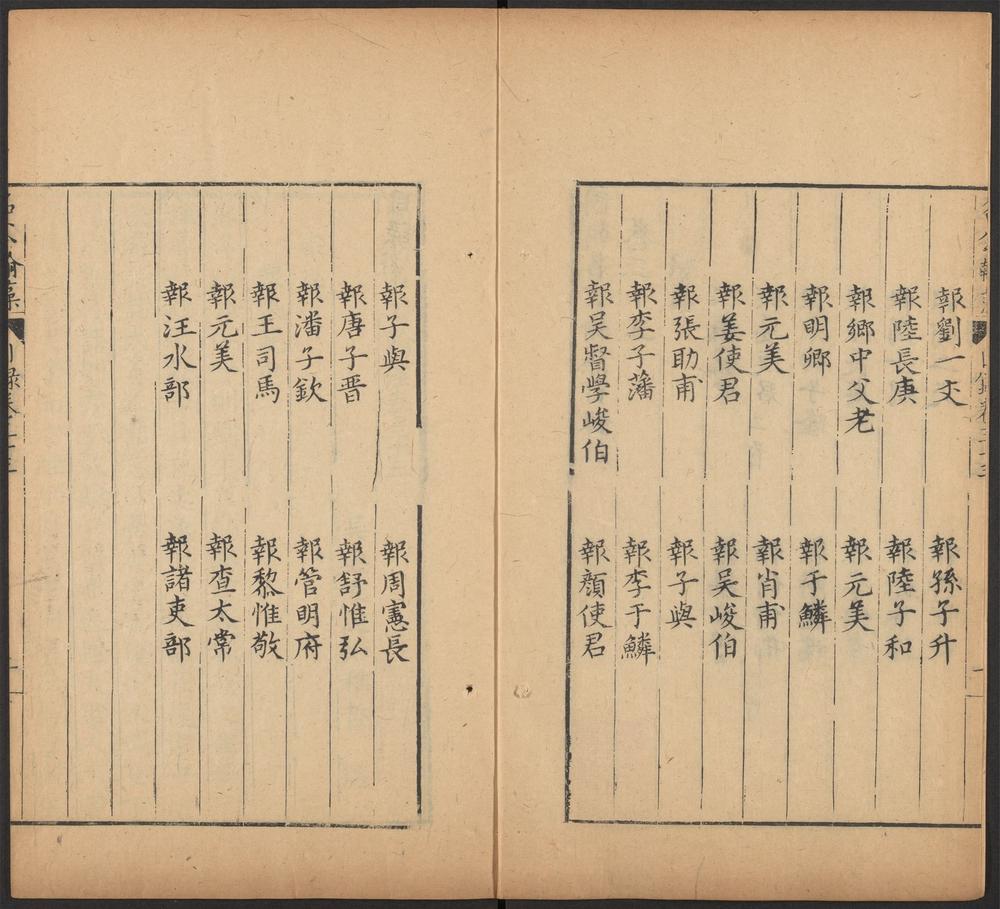 報劉一丈
報孫子升
報陸長庚
報陸子和
報鄉中父老
報元美
報明卿
報于鱗
報元美
報肖甫
報姜使君
報吳峻伯
報張助甫
報子與
報李子藩
報李于鱗
報吳督學峻伯
報顏使君
報子與
報周憲長
報唐子晋
報舒惟弘
報潘子欽
報管明府
報王司馬
報黎惟敬
報元美
報查太常
報汪水部
報諸吏部